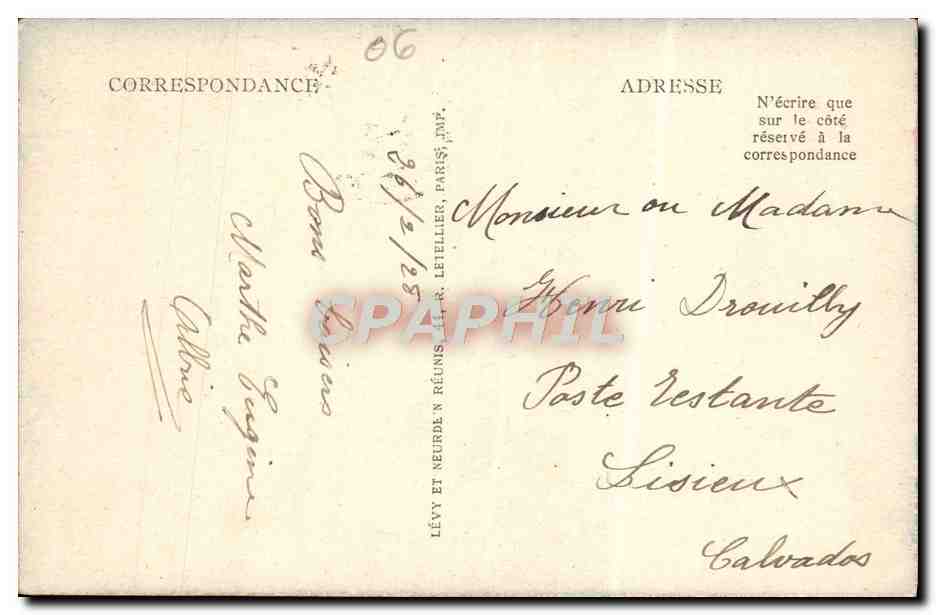 06
CORRESPONDANCE
26/2/28
Bons baisers
Marthe Eugène
LÉVY ET NEURDEIN RÉUNIS, 44, R. LETELLIER, PARIS, IMP.
ADRESSE
N'écrire que
sur le côté
réservé à la
correspondance
Monsieur ou Madame
Henri Drouilly
Poste restante
Lisieux
Calvados
CPAPHIL